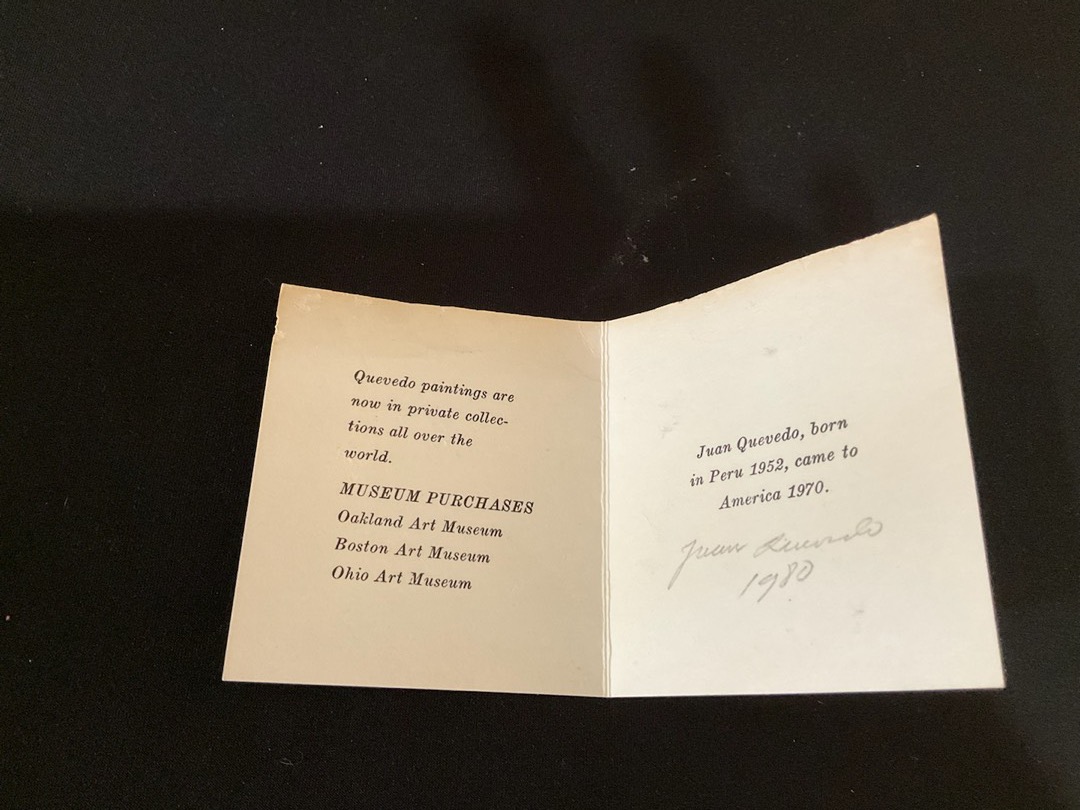 Quevedo paintings are
now in private collec-
tions all over the
world.
MUSEUM PURCHASES
Oakland Art Museum
Boston Art Museum
Ohio Art Museum
Juan Quevedo, born
in Peru 1952, came to
America 1970.
Juan Quevedo
1980